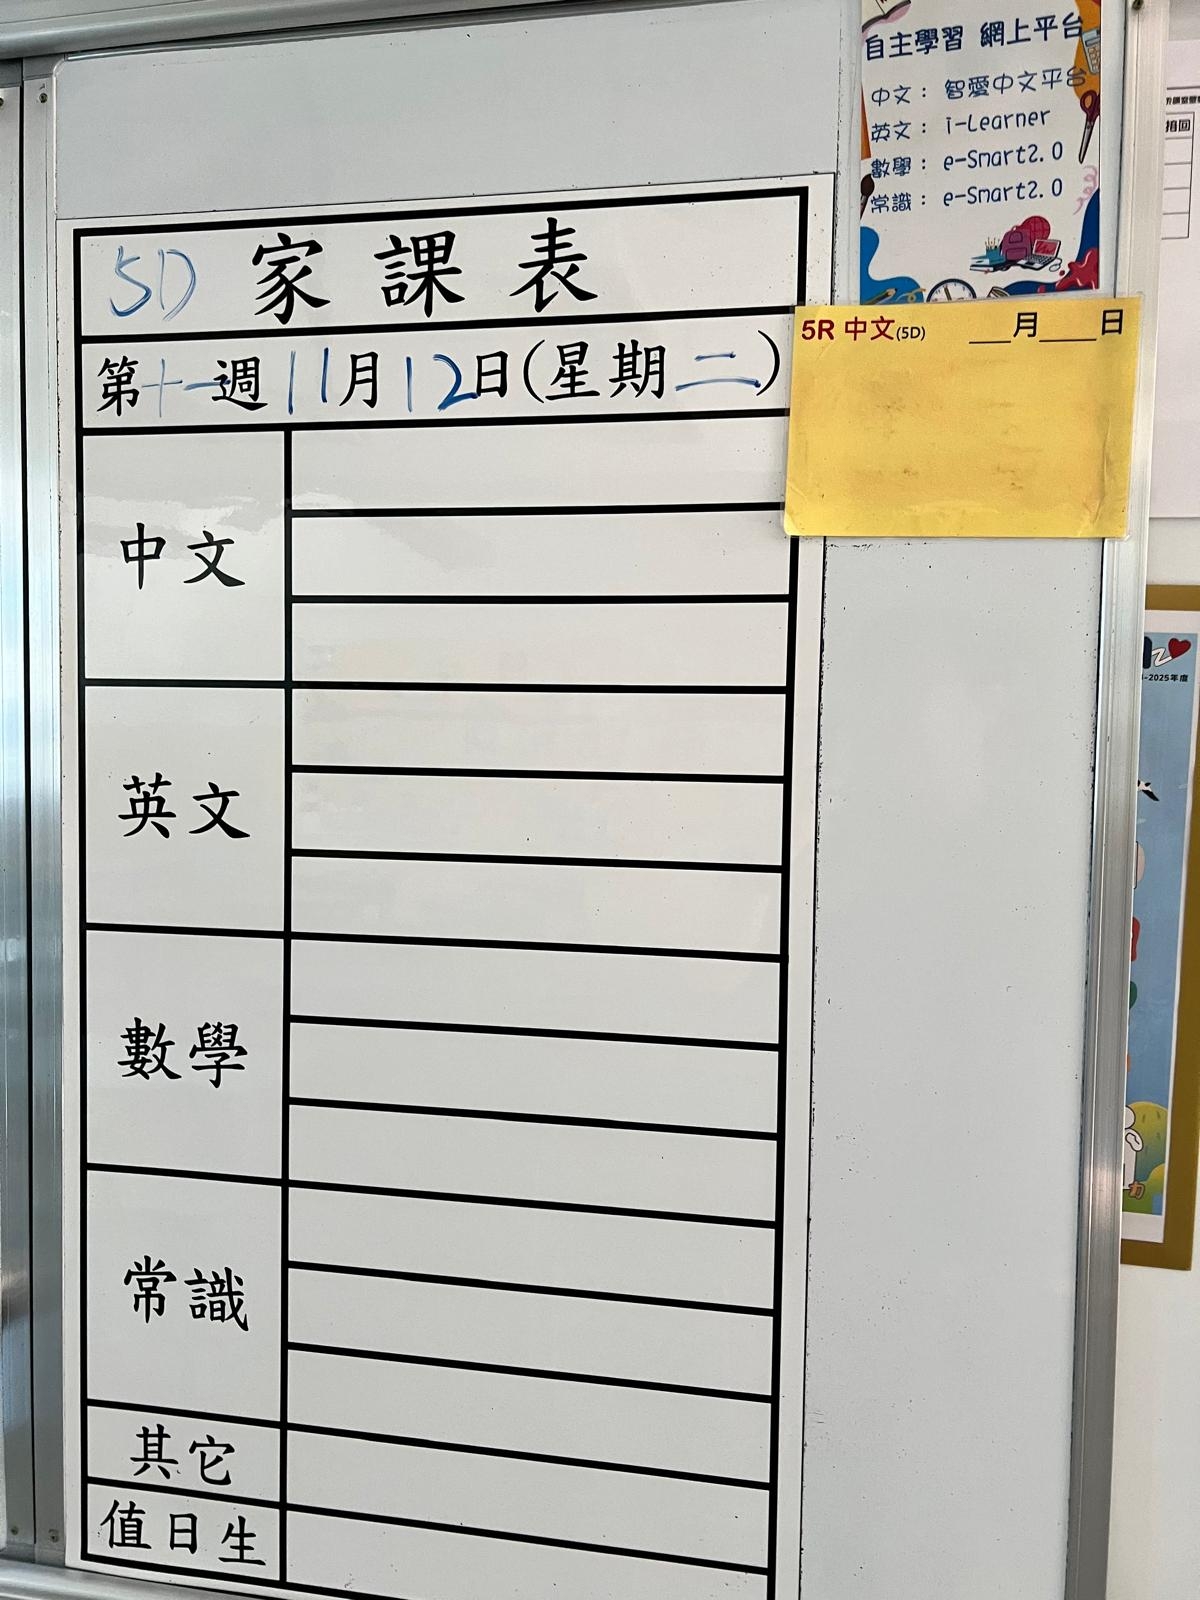 自主學習 網上平台
中文： 智愛中文平台
英文： i-Learner
數學： e-Smart2.0
常識： e-Smart2.0
5D 家課表
第十一週 11月12日(星期二)
5R 中文(5D) ___月____日
中文
英文
數學
常識
其它
值日生
-2025年度